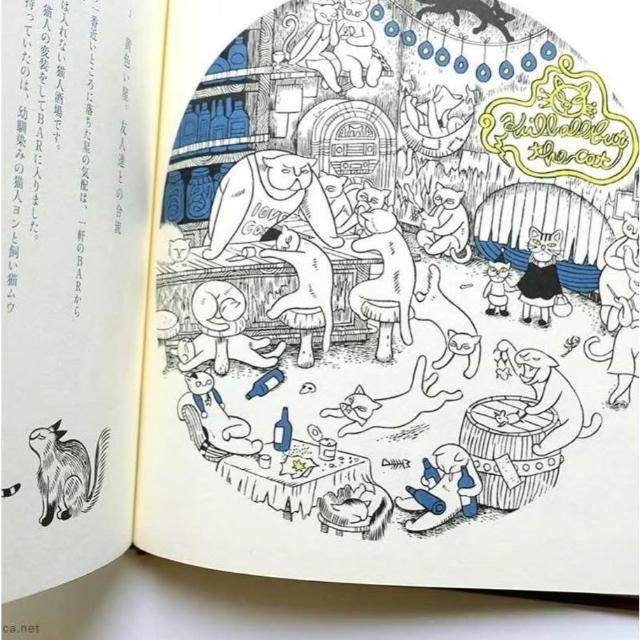 黄色い星、友人達との合流
番近いところに落ちた星の気配は、一軒のBARから
は入れない猫人酒場です。
猫人への変装をしてBARに入りました。
待っていたのは、幼馴染みの猫人ヨンと飼い猫ムウ
all but
the cat
ca.net